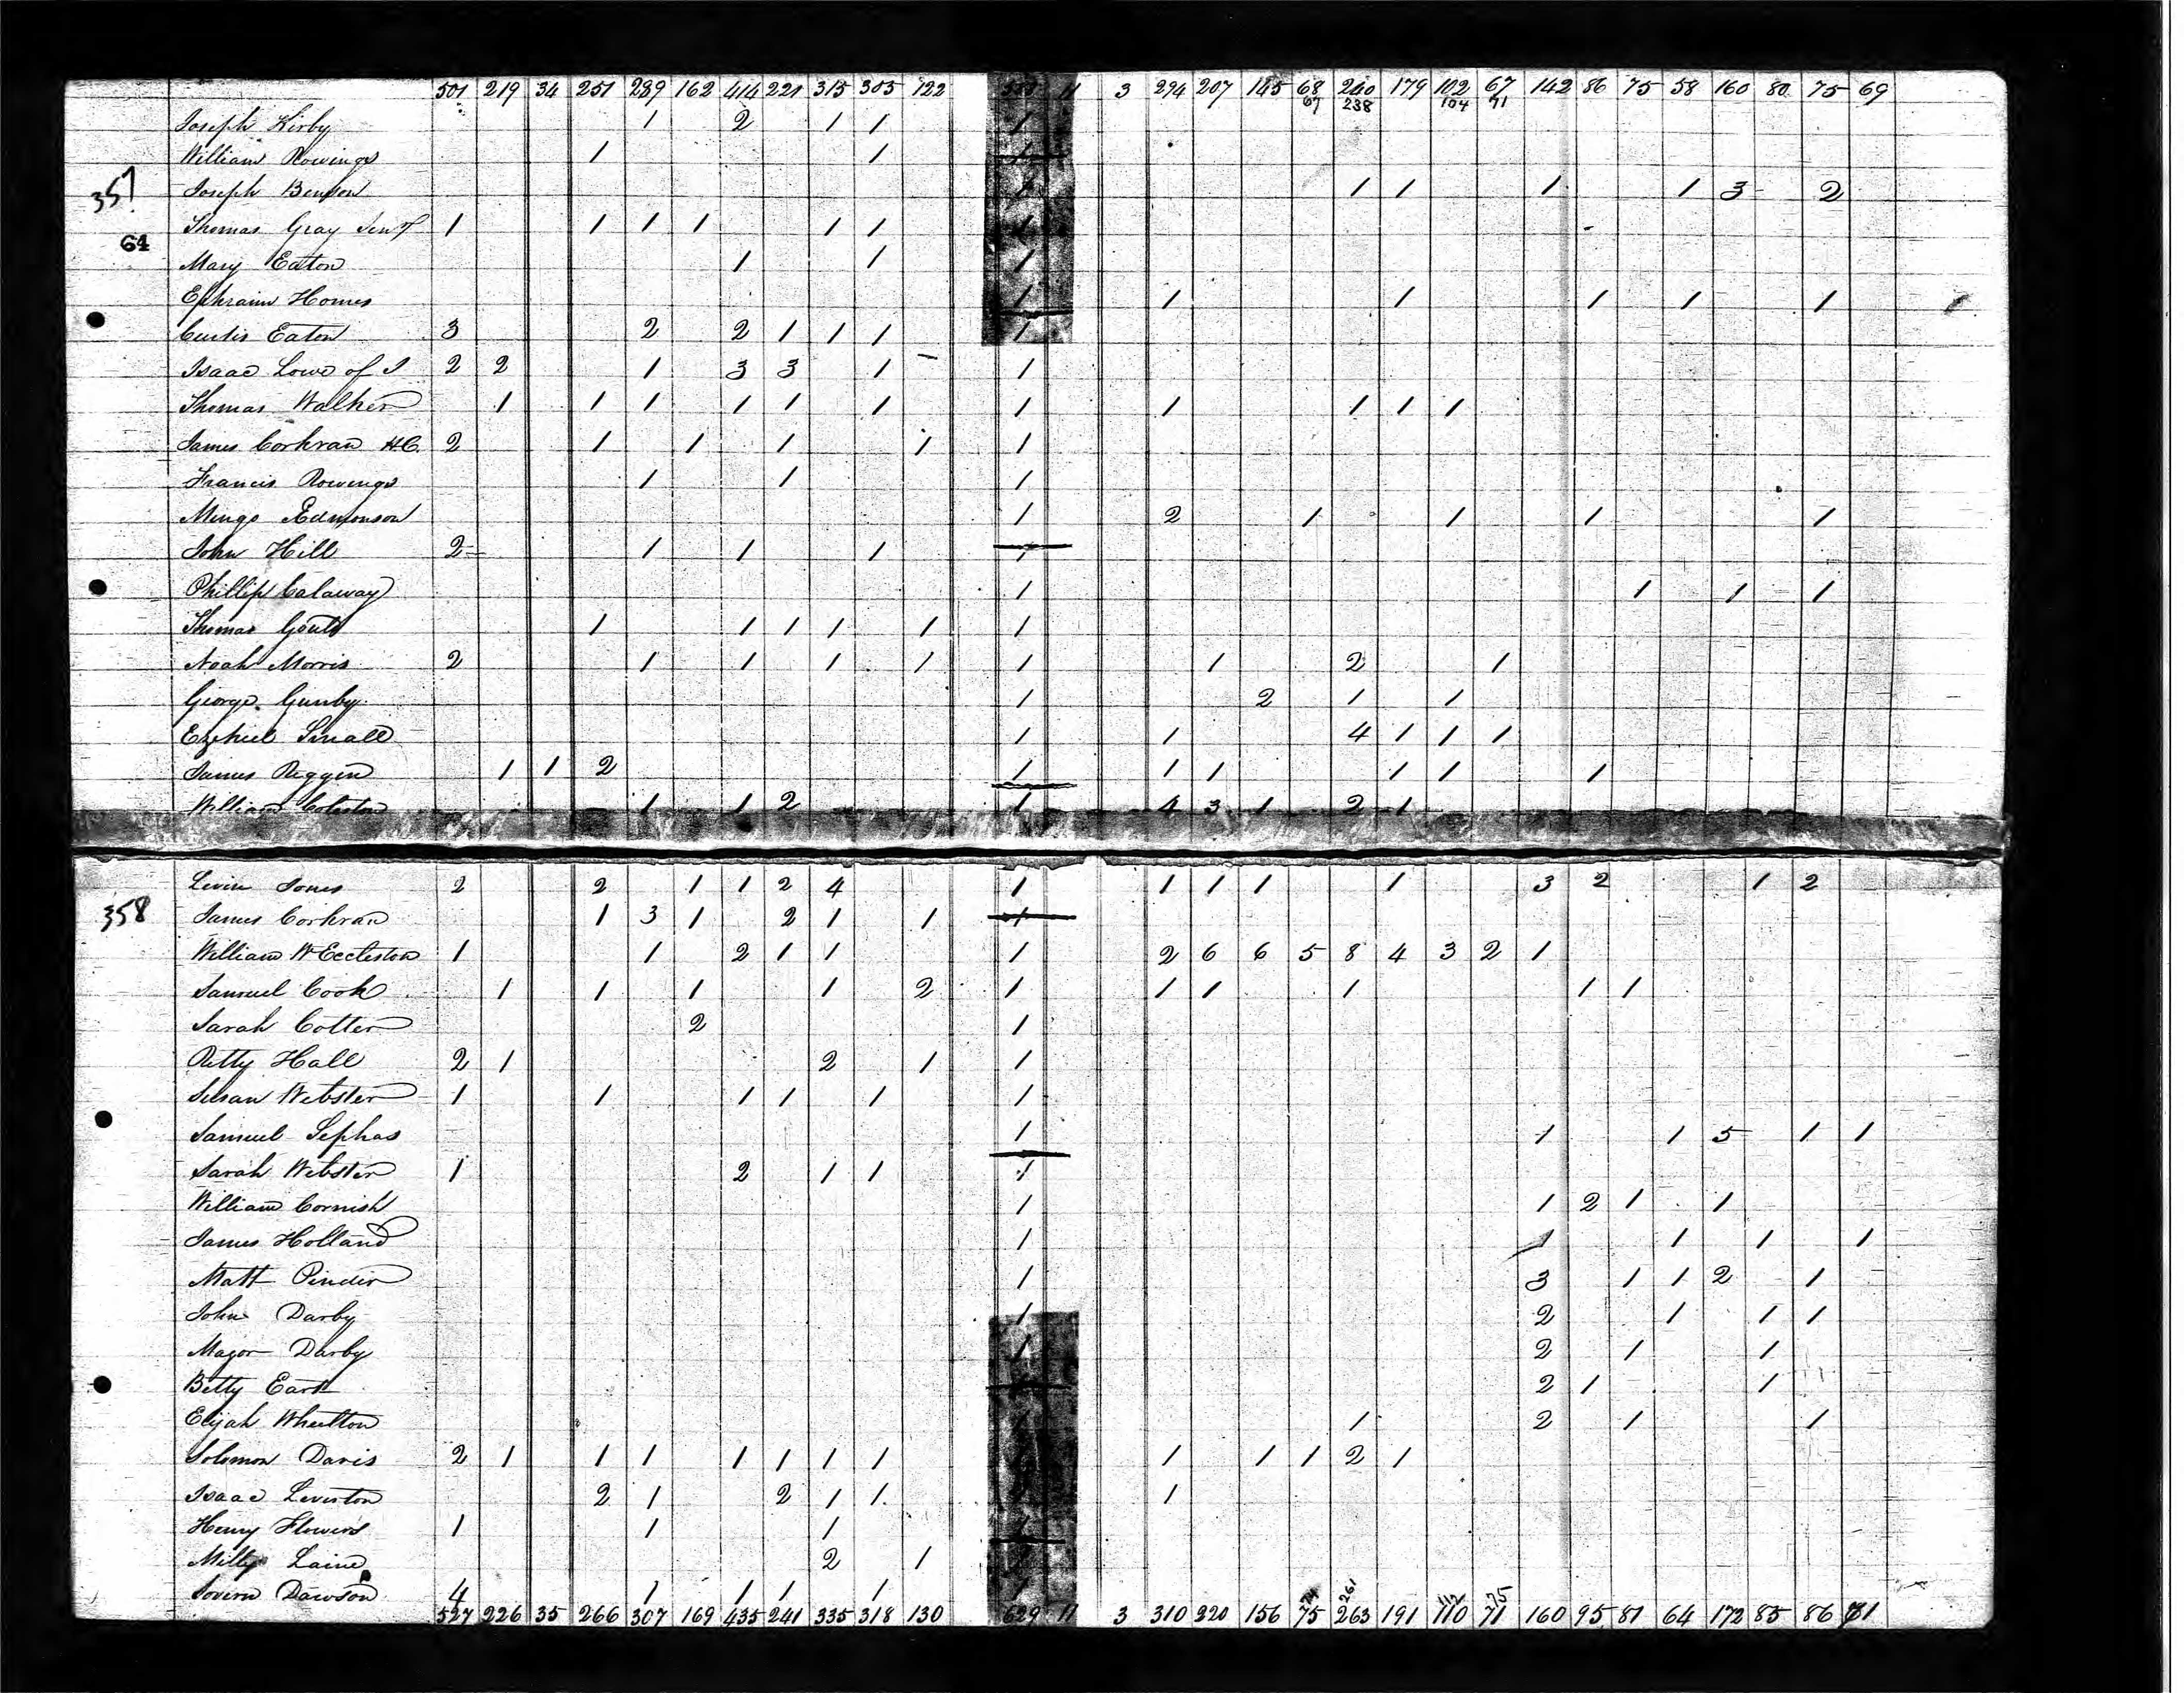 501 219 34 251 289 162 414 221 315 305 122 11 3 294 207 145 68 240 179 102 67 142 86 75 58 160 80 75 69
67 238 104 71
Joseph Kirby 1 2 1 1 1
William Rowings 1 1 1
357 Joseph Benson 1 1 1 1 3 2
Thomas Gray Senr 1 1 1 1 1 1 1
64
Mary Eaton 1 1 1
Ephraim Homes 1 1 1 1 1 1
Curtis Eaton 3 2 2 1 1 1 1
Isaac Lowe of I 2 2 1 3 3 1 1
Thomas Walker 1 1 1 1 1 1 1 1 1 1 1
James Corkran HC. 2 1 1 1 1 1
Francis Rowings 1 1 1
Mingo Edmonson 1 2 1 1 1 1
John Hill 2 1 1 1 1
Phillip Calaway 1 1 1 1
Thomas 1 1 1 1 1 1
Noah Morris 2 1 1 1 1 1 1 2 1
George Gunby 1 2 1 1
Ezekiel Small 1 1 4 1 1 1
James Reggin 1 1 2 1 1 1 1 1 1
William Coleston 1 1 2 1 4 3 1 2 1
Levin Jones 2 2 1 1 2 4 1 1 1 1 1 3 2 1 2
358 James Corkran 1 3 1 2 1 1 1
William W Eccleston 1 1 2 1 1 1 2 6 6 5 8 4 3 2 1
Samuel Cook 1 1 1 1 2 1 1 1 1 1 1
Sarah Cotter 2 1
Hall 2 1 2 1 1
Susan Webster 1 1 1 1 1 1
Samuel Sephas 1 1 1 5 1 1
Sarah Webster 1 2 1 1 1
William Cornish 1 1 2 1 1
James Holland 1 1 1 1 1
Matt Pinder 1 3 1 1 2 1
John Darby 1 2 1 1 1
Major Darby 1 2 1 1
Betty 2 1 1
Elijah Wheelton 1 1 2 1 1
Solomon Davis 2 1 1 1 1 1 1 1 1 1 1 2 1
Isaac Leverton 2 1 2 1 1 1
Henry Flowers 1 1 1 1
Milly Laine 2 1
Dawson 4 1 1 1 1 1
74 261 112 75
527 226 35 266 307 169 435 241 335 318 130 629 11 3 310 220 156 75 263 191 110 71 160 95 81 64 172 85 86 71